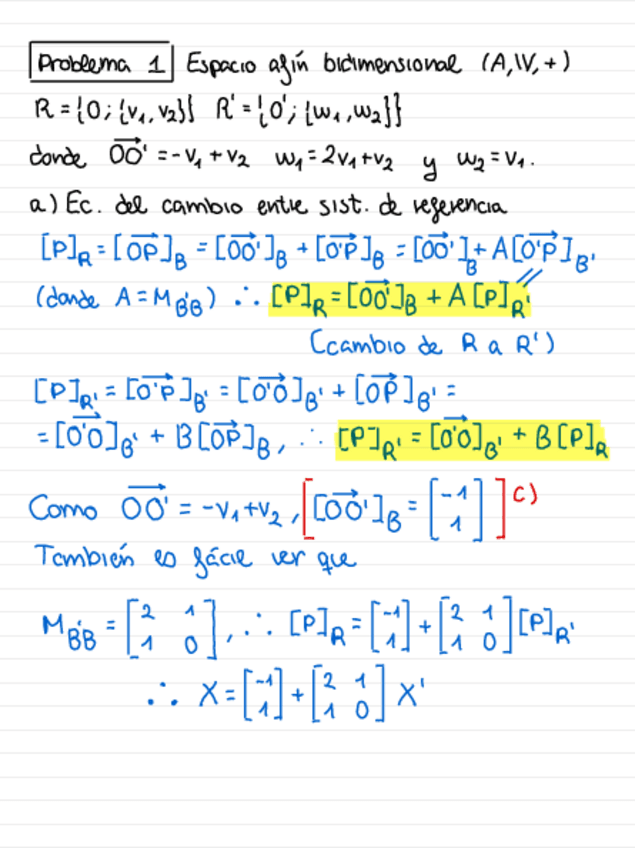 Problema 1 Espacio afín bidimensional (A, V, +)
R = {O; {v₁, v₂}} R' = {O'; {w₁, w₂}}
donde OO' = -v₁ + v₂ w₁ = 2v₁ + v₂ y w₂ = v₁.
a) Ec. del cambio entre sist. de referencia
[P]_R = [OP]_B = [OO']_B + [O'P]_B = [OO']_B + A[O'P]_B'
(donde A = M_B'B) ∴ [P]_R = [OO']_B + A[P]_R'
(cambio de R a R')
[P]_R' = [O'P]_B' = [O'O]_B' + [OP]_B' =
= [O'O]_B' + B[OP]_B, ∴ [P]_R' = [O'O]_B' + B[P]_R
Como OO' = -v₁ + v₂, [[OO']_B = [-1 1]] c)
También es fácil ver que
M_B'B = [2 1 1 0], ∴ [P]_R = [-1 1] + [2 1 1 0] [P]_R'
∴ X = [-1 1] + [2 1 1 0] X'